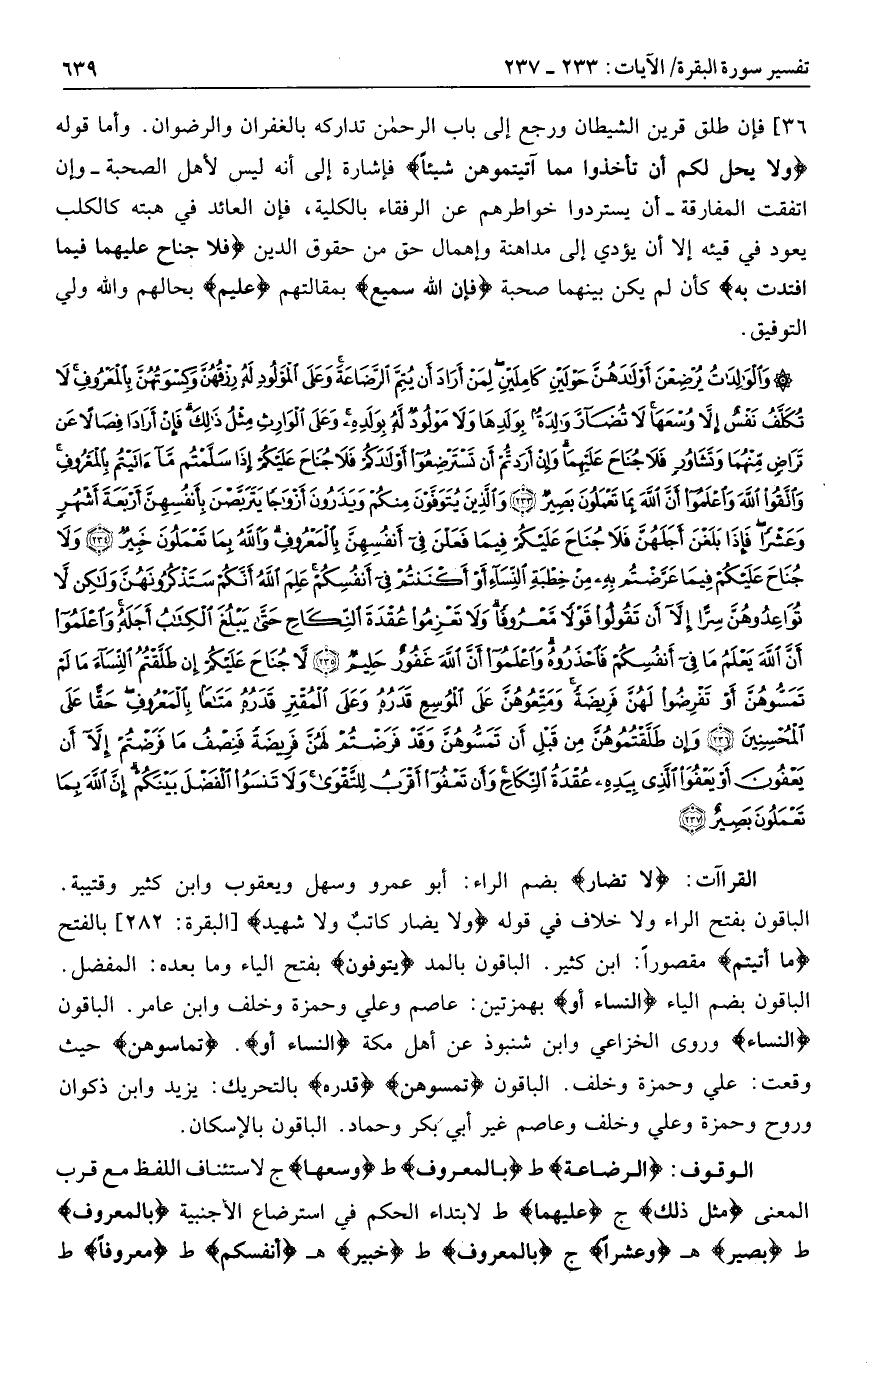 تفسير سورة البقرة/ الآيات: ٢٣٣ ـ ٢٣٧ ٦٣٩
٣٦] فإن طلق قرين الشيطان ورجع إلى باب الرحمٰن تداركه بالغفران والرضوان. وأما قوله
﴿ولا يحل لكم أن تأخذوا مما آتيتموهن شيئاً﴾ فإشارة إلى أنه ليس لأهل الصحبة ـ وإن
اتفقت المفارقة ـ أن يستردوا خواطرهم عن الرفقاء بالكلية، فإن العائد في هبته كالكلب
يعود في قيئه إلا أن يؤدي إلى مداهنة وإهمال حق من حقوق الدين ﴿فلا جناح عليهما فيما
افتدت به﴾ كأن لم يكن بينهما صحبة ﴿فإن الله سميع﴾ بمقالتهم ﴿عليم﴾ بحالهم والله ولي
التوفيق.
۞ وَٱلْوَٰلِدَٰتُ يُرْضِعْنَ أَوْلَٰدَهُنَّ حَوْلَيْنِ كَامِلَيْنِ ۖ لِمَنْ أَرَادَ أَن يُتِمَّ ٱلرَّضَاعَةَ ۚ وَعَلَى ٱلْمَوْلُودِ لَهُۥ رِزْقُهُنَّ وَكِسْوَتُهُنَّ بِٱلْمَعْرُوفِ ۚ لَا
تُكَلَّفُ نَفْسٌ إِلَّا وُسْعَهَا ۚ لَا تُضَآرَّ وَٰلِدَةٌۢ بِوَلَدِهَا وَلَا مَوْلُودٌ لَّهُۥ بِوَلَدِهِۦ ۚ وَعَلَى ٱلْوَارِثِ مِثْلُ ذَٰلِكَ ۗ فَإِنْ أَرَادَا فِصَالًا عَن
تَرَاضٍ مِّنْهُمَا وَتَشَاوُرٍ فَلَا جُنَاحَ عَلَيْهِمَا ۗ وَإِنْ أَرَدتُّمْ أَن تَسْتَرْضِعُوٓا۟ أَوْلَٰدَكُمْ فَلَا جُنَاحَ عَلَيْكُمْ إِذَا سَلَّمْتُم مَّآ ءَاتَيْتُم بِٱلْمَعْرُوفِ ۗ
وَٱتَّقُوا۟ ٱللَّهَ وَٱعْلَمُوٓا۟ أَنَّ ٱللَّهَ بِمَا تَعْمَلُونَ بَصِيرٌ ﴿٢٣٣﴾ وَٱلَّذِينَ يُتَوَفَّوْنَ مِنكُمْ وَيَذَرُونَ أَزْوَٰجًا يَتَرَبَّصْنَ بِأَنفُسِهِنَّ أَرْبَعَةَ أَشْهُرٍ
وَعَشْرًا ۖ فَإِذَا بَلَغْنَ أَجَلَهُنَّ فَلَا جُنَاحَ عَلَيْكُمْ فِيمَا فَعَلْنَ فِىٓ أَنفُسِهِنَّ بِٱلْمَعْرُوفِ ۗ وَٱللَّهُ بِمَا تَعْمَلُونَ خَبِيرٌ ﴿٢٣٤﴾ وَلَا
جُنَاحَ عَلَيْكُمْ فِيمَا عَرَّضْتُم بِهِۦ مِنْ خِطْبَةِ ٱلنِّسَآءِ أَوْ أَكْنَنتُمْ فِىٓ أَنفُسِكُمْ ۚ عَلِمَ ٱللَّهُ أَنَّكُمْ سَتَذْكُرُونَهُنَّ وَلَٰكِن لَّا
تُوَاعِدُوهُنَّ سِرًّا إِلَّآ أَن تَقُولُوا۟ قَوْلًا مَّعْرُوفًا ۚ وَلَا تَعْزِمُوا۟ عُقْدَةَ ٱلنِّكَاحِ حَتَّىٰ يَبْلُغَ ٱلْكِتَٰبُ أَجَلَهُۥ ۚ وَٱعْلَمُوٓا۟
أَنَّ ٱللَّهَ يَعْلَمُ مَا فِىٓ أَنفُسِكُمْ فَٱحْذَرُوهُ ۚ وَٱعْلَمُوٓا۟ أَنَّ ٱللَّهَ غَفُورٌ حَلِيمٌ ﴿٢٣٥﴾ لَّا جُنَاحَ عَلَيْكُمْ إِن طَلَّقْتُمُ ٱلنِّسَآءَ مَا لَمْ
تَمَسُّوهُنَّ أَوْ تَفْرِضُوا۟ لَهُنَّ فَرِيضَةً ۚ وَمَتِّعُوهُنَّ عَلَى ٱلْمُوسِعِ قَدَرُهُۥ وَعَلَى ٱلْمُقْتِرِ قَدَرُهُۥ مَتَٰعًۢا بِٱلْمَعْرُوفِ ۖ حَقًّا عَلَى
ٱلْمُحْسِنِينَ ﴿٢٣٦﴾ وَإِن طَلَّقْتُمُوهُنَّ مِن قَبْلِ أَن تَمَسُّوهُنَّ وَقَدْ فَرَضْتُمْ لَهُنَّ فَرِيضَةً فَنِصْفُ مَا فَرَضْتُمْ إِلَّآ أَن
يَعْفُونَ أَوْ يَعْفُوَا۟ ٱلَّذِى بِيَدِهِۦ عُقْدَةُ ٱلنِّكَاحِ ۚ وَأَن تَعْفُوٓا۟ أَقْرَبُ لِلتَّقْوَىٰ ۚ وَلَا تَنسَوُا۟ ٱلْفَضْلَ بَيْنَكُمْ ۚ إِنَّ ٱللَّهَ بِمَا
تَعْمَلُونَ بَصِيرٌ ﴿٢٣٧﴾
القراآت: ﴿لا تضار﴾ بضم الراء: أبو عمرو وسهل ويعقوب وابن كثير وقتيبة.
الباقون بفتح الراء ولا خلاف في قوله ﴿ولا يضار كاتبٌ ولا شهيد﴾ [البقرة: ٢٨٢] بالفتح
﴿ما أتيتم﴾ مقصوراً: ابن كثير. الباقون بالمد ﴿يتوفون﴾ بفتح الياء وما بعده: المفضل.
الباقون بضم الياء ﴿النساء أو﴾ بهمزتين: عاصم وعلي وحمزة وخلف وابن عامر. الباقون
﴿النساء﴾ وروى الخزاعي وابن شنبوذ عن أهل مكة ﴿النساء أو﴾. ﴿تماسوهن﴾ حيث
وقعت: علي وحمزة وخلف. الباقون ﴿تمسوهن﴾ ﴿قدره﴾ بالتحريك: يزيد وابن ذكوان
وروح وحمزة وعلي وخلف وعاصم غير أبي بكر وحماد. الباقون بالإسكان.
الوقوف: ﴿الرضاعة﴾ ط ﴿بالمعروف﴾ ط ﴿وسعها﴾ ج لاستئناف اللفظ مع قرب
المعنى ﴿مثل ذلك﴾ ج ﴿عليهما﴾ ط لابتداء الحكم في استرضاع الأجنبية ﴿بالمعروف﴾
ط ﴿بصير﴾ هـ ﴿وعشراً﴾ ج ﴿بالمعروف﴾ ط ﴿خبير﴾ هـ ﴿أنفسكم﴾ ط ﴿معروفاً﴾ ط